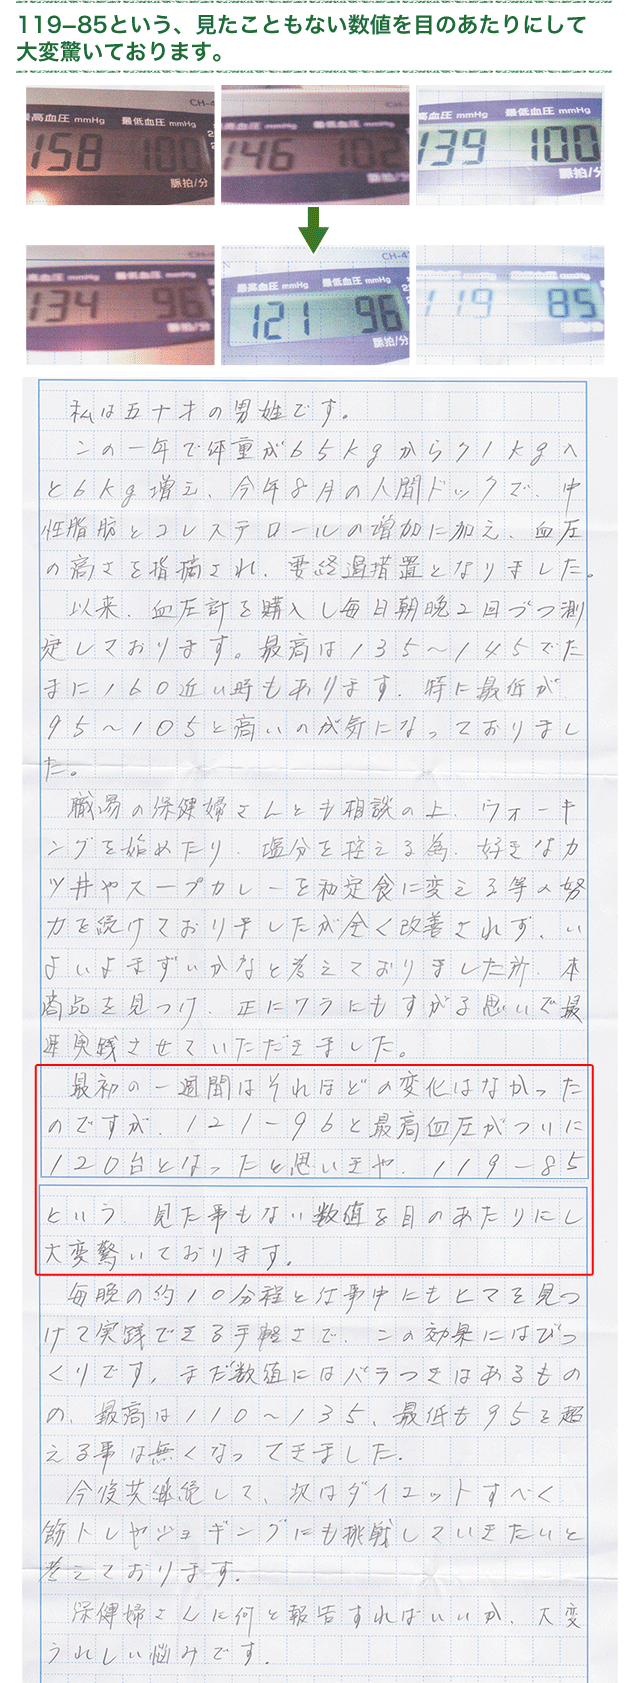 119−85という、見たこともない数値を目のあたりにして
大変驚いております。
CH-4
最高血圧 mmHg 最低血圧 mmHg
158 100
脈拍/分
CH-4
血圧 mmHg 最低血圧 mmHg
146 102
脈拍/分
血圧 mmHg 最低血圧 mmHg
139 100
脈拍/分
CH-4
最高血圧 mmHg 最低血圧 mmHg
134 96
脈拍/分
CH-4
最高血圧 mmHg 最低血圧 mmHg
121 96
脈拍/分
最高血圧 mmHg 最低血圧 mmHg
119 85
私は五十才の男性です。
この一年で体重が65kgから71kgへ
と6kg増え、今年8月の人間ドックで、中
性脂肪とコレステロールの増加に加え、血圧
の高さを指摘され、要経過措置となりました。
以来、血圧計を購入し毎日朝晩2回づつ測
定しております。最高は135〜145でた
まに160近い時もあります。特に最低が
95〜105と高いのが気になっておりまし
た。
職場の保健婦さんとも相談の上、ウォーキ
ングを始めたり、塩分を控える為、好きなカ
ツ丼やスープカレーを和定食に変える等の努
力を続けておりましたが全く改善されず、い
よいよまずいかなと考えておりました所、本
商品を見つけ、正にワラにもすがる思いで最
速実践させていただきました。
最初の一週間はそれほどの変化はなかった
のですが、121−96と最高血圧がついに
120台となったと思いきや、119−85
という、見た事もない数値を目のあたりにし
大変驚いております。
毎晩の約10分程と仕事中にもヒマを見つ
けて実践できる手軽さで、この効果にはびっ
くりです。まだ数値にはバラつきはあるもの
の、最高は110〜135、最低も95を超
える事は無くなってきました。
今後共継続して、次はダイエットすべく
筋トレやジョギングにも挑戦していきたいと
考えております。
保健婦さんに何と報告すればいいか、大変
うれしい悩みです。